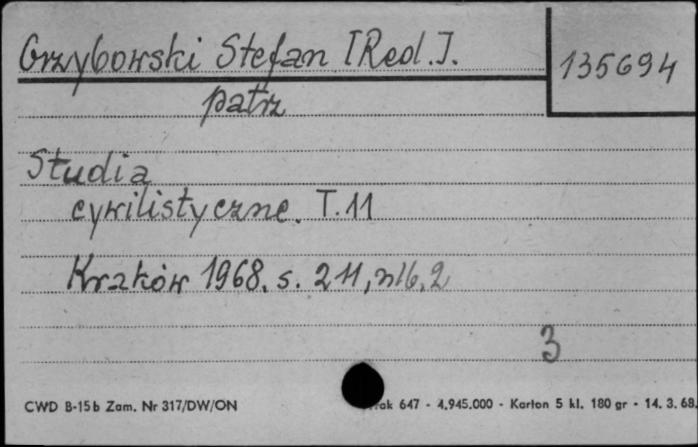 Grzybowski Stefan [Red.].
135694
patrz
Studia
cywilistyczne. T.11
Kraków 1968. s. 211, nlb. 2
3
CWD B-15b Zam. Nr 317/DW/ON
647 - 4.945.000 - Karton 5 kl. 180 gr - 14. 3. 68.